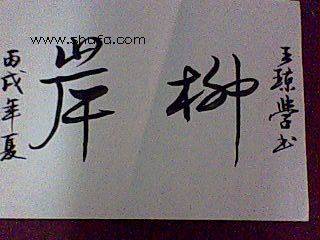 www.shafa.com
王琼学书
柳岸
丙戌年夏